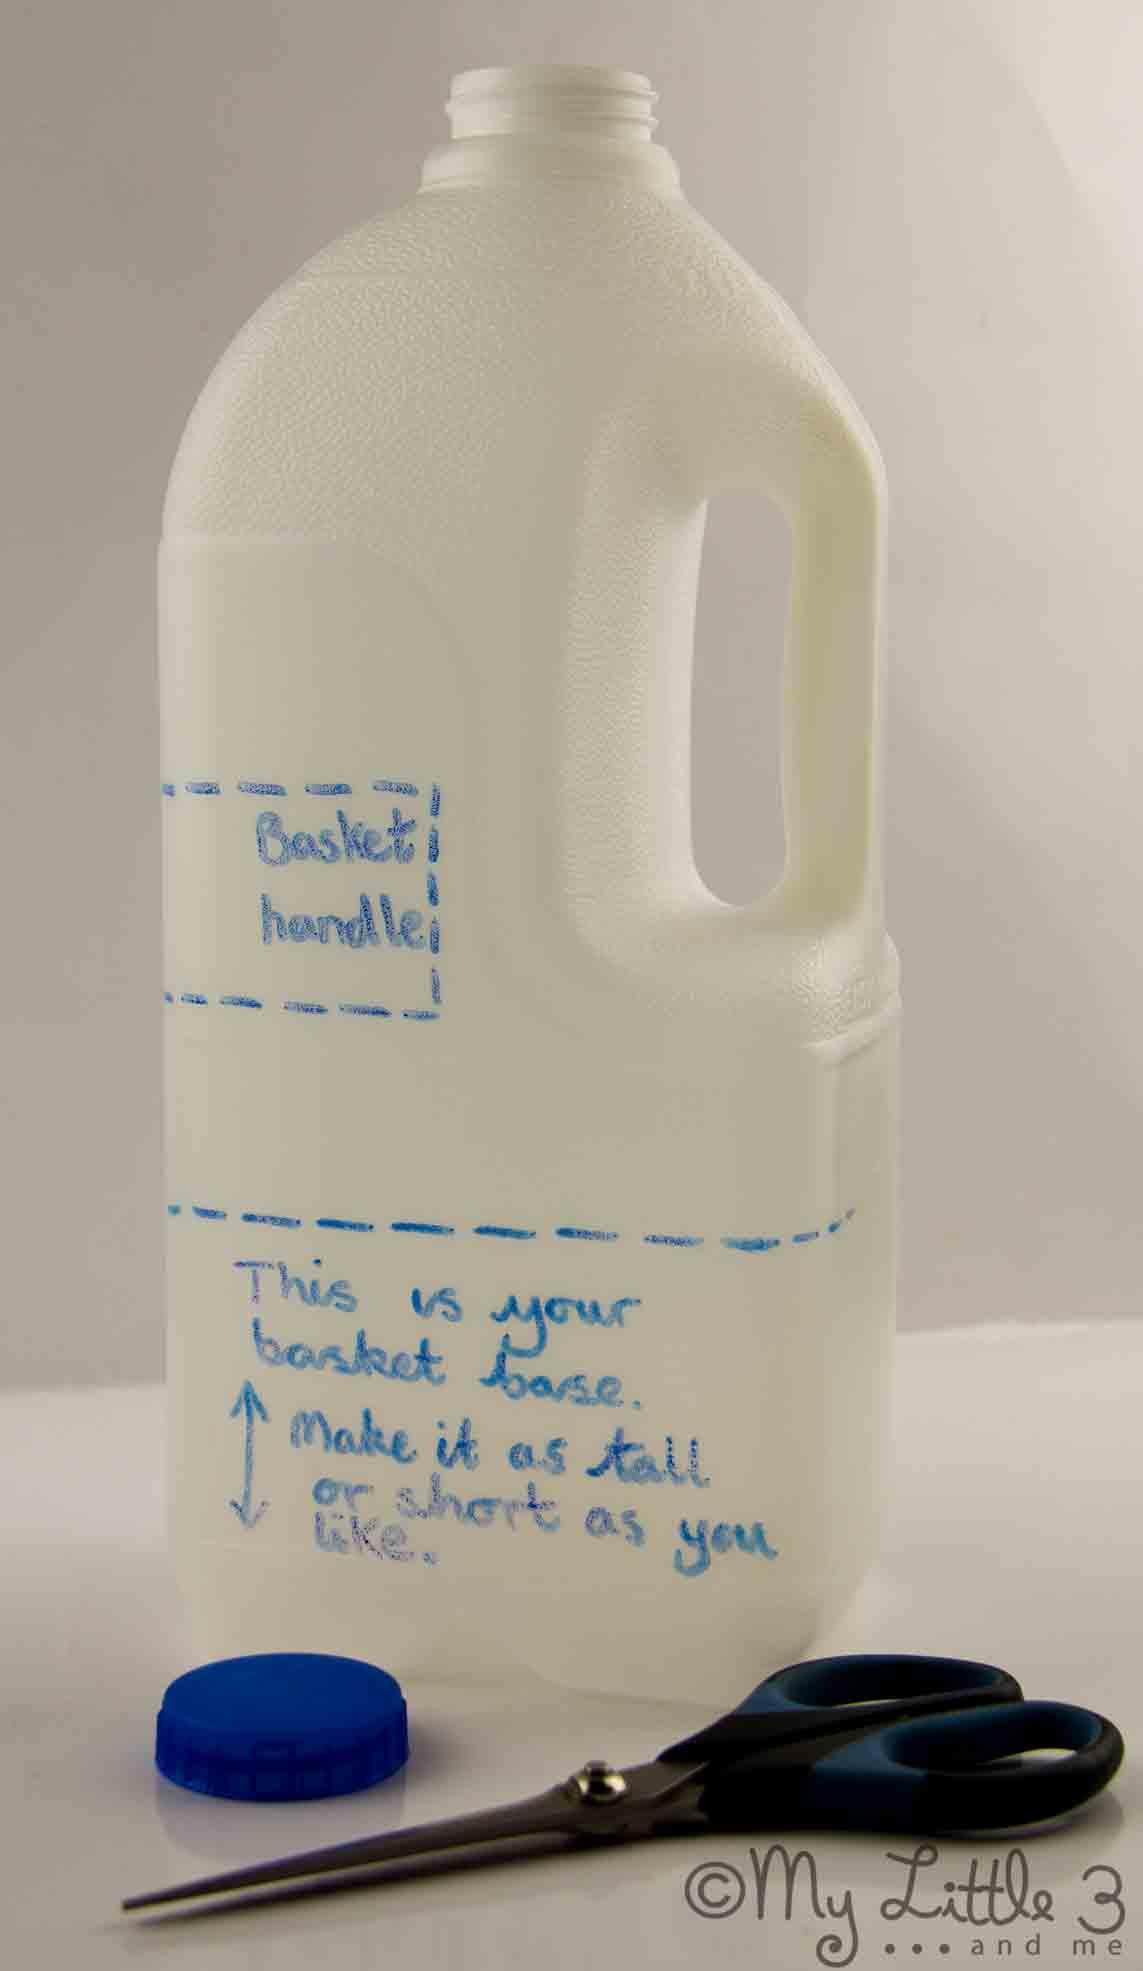 Basket
handle
This is your
basket base.
Make it as tall
or short as you
like.
©My Little 3
...and me